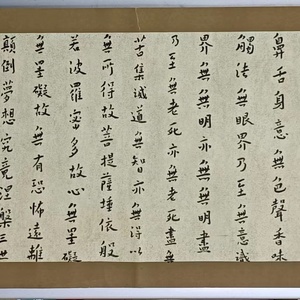 鼻舌身意無色聲香味
觸法無眼界乃至無意識
界無無明亦無明盡
乃至無老死亦無老死盡無
苦集滅道無智亦無得以
無所得故菩提薩埵依般
若波羅蜜多故心無罣礙
無罣礙故無有恐怖遠離
顛倒夢想究竟涅槃三世